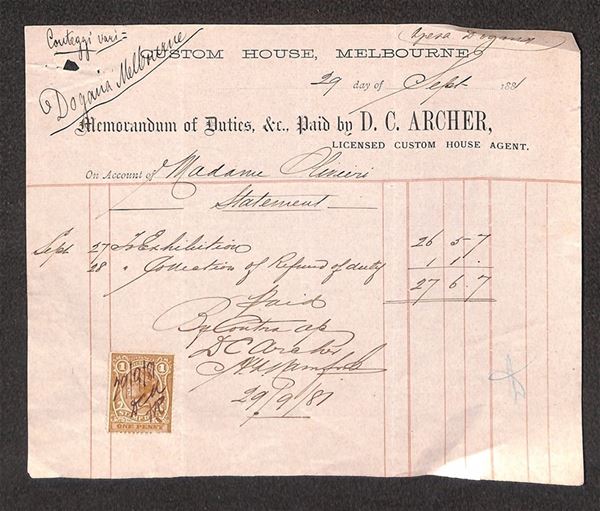 Conteggi vari =
Spesa Dogana
Dogana Melbourne
CUSTOM HOUSE, MELBOURNE,
29 day of Sept 1881
Memorandum of Duties, &c., Paid by D. C. ARCHER,
LICENSED CUSTOM HOUSE AGENT.
On Account of Madame Olivieri
Statement
Sept 27 To Exhibition 26 5 7
28 " Collection of Refund of duty 1 1 .
27 6 7
Paid
By Contra a/c
D C Archer
29/9/81
1 1
29/9/81
ONE PENNY